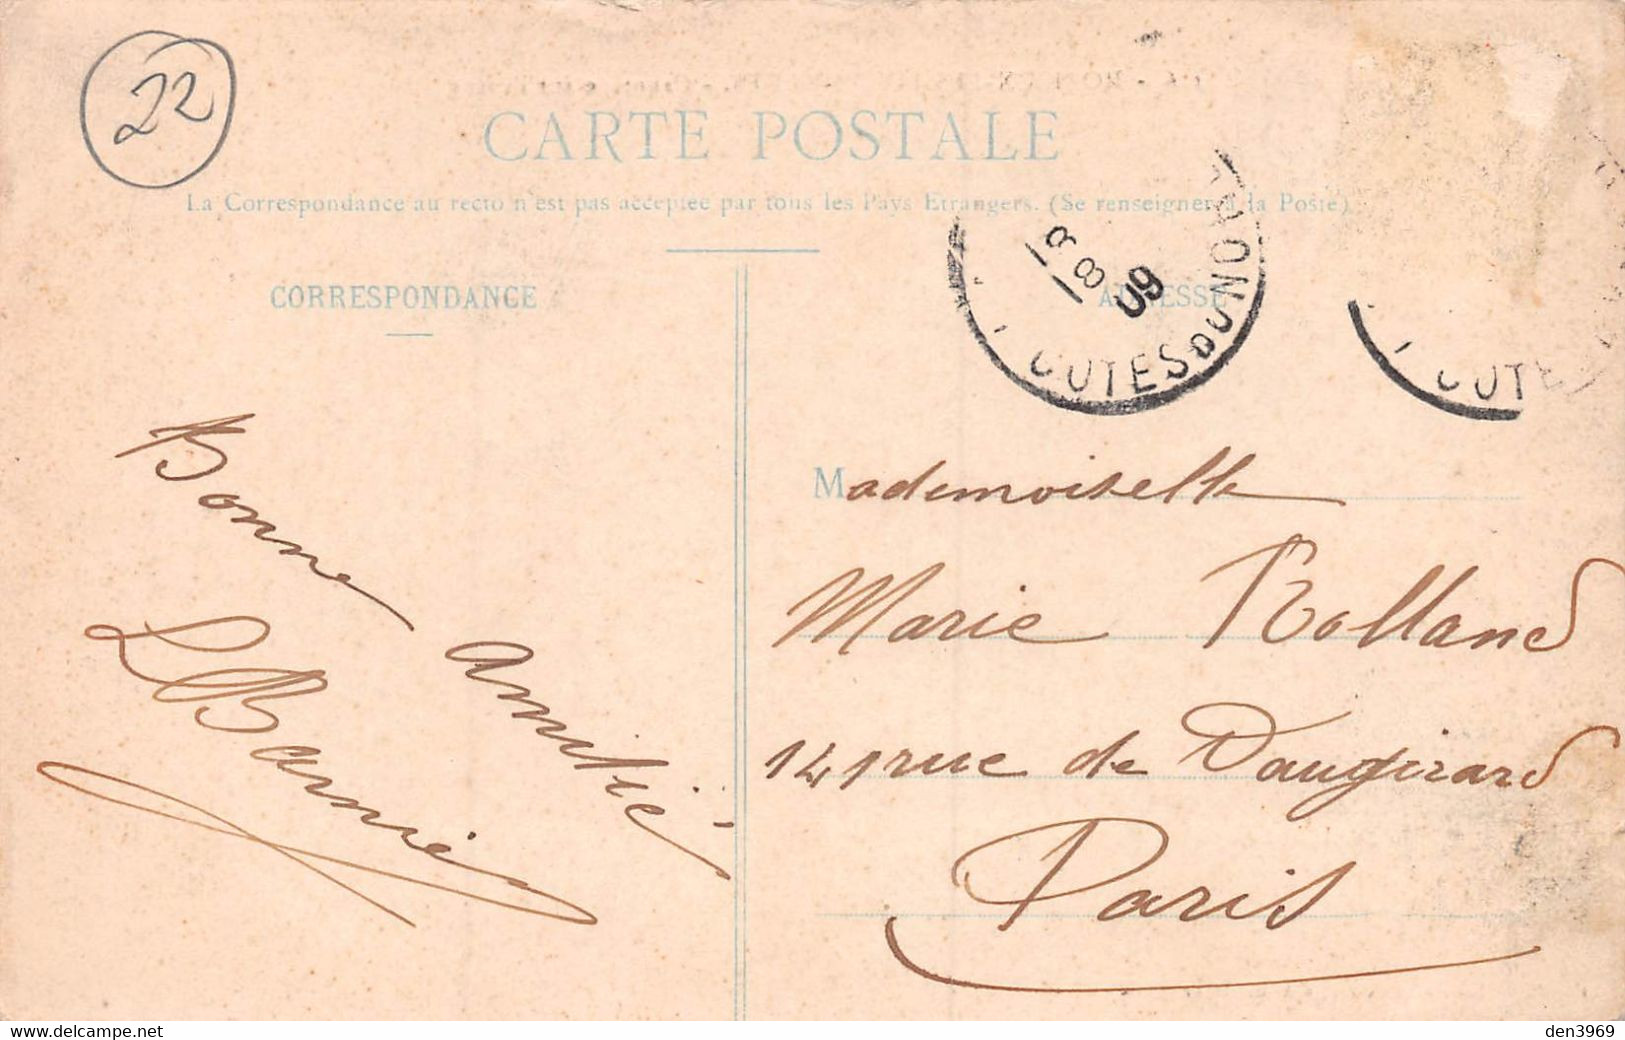 22
CARTE POSTALE
La Correspondance au recto n'est pas acceptée par tous les Pays Etrangers. (Se renseigner à la Poste)
CORRESPONDANCE
ADRESSE
8
09
COTES DU NORD
COTE
Bonne amitié
LBarnié
Mademoiselle
Marie Rolland
141 rue de Vaugirard
Paris
www.delcampe.net
den3969